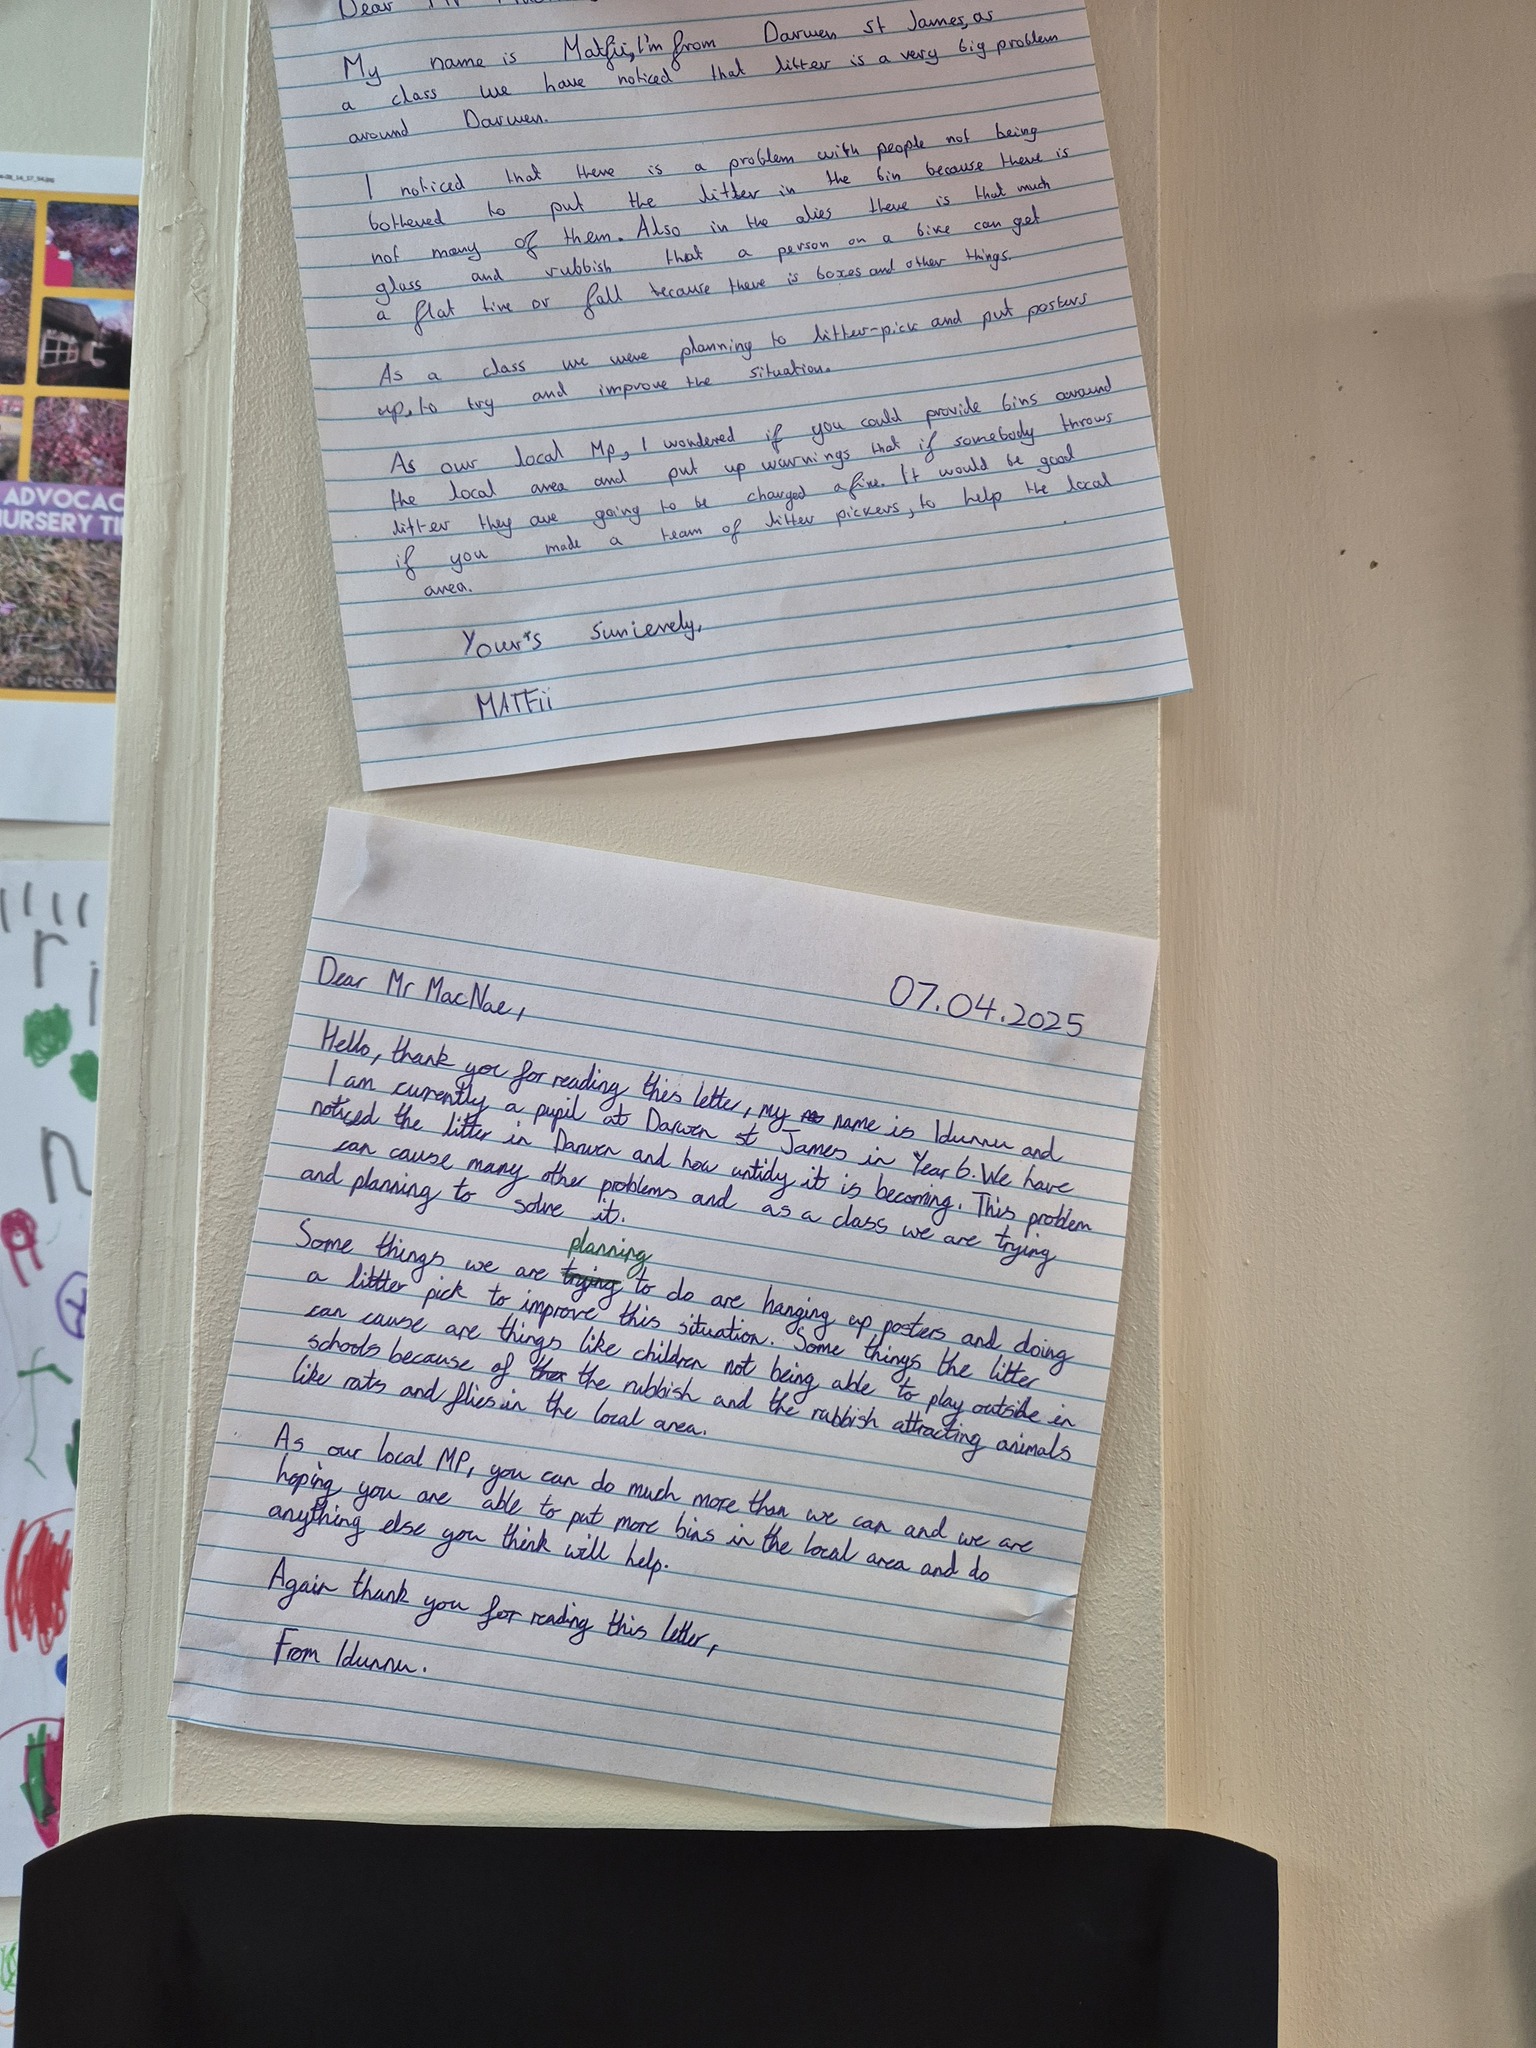 Dear Mr
My name is Matfii, I'm from Darwen st James, as
a class we have noticed that litter is a very big problem
around Darwen.
I noticed that there is a problem with people not being
bothered to put the litter in the bin because there is
not many of them. Also in the alies there is that much
glass and rubbish that a person on a bike can get
a flat tire or fall because there is boxes and other things.
As a class we were planning to litter-pick and put posters
up, to try and improve the situation.
As our local Mp, I wondered if you could provide bins around
the local area and put up warnings that if somebody throws
litter they are going to be charged a fine. It would be good
if you made a team of litter pickers, to help the local
area.
Your's sunierely,
MATFii
07.04.2025
Dear Mr MacNae,
Hello, thank you for reading this letter, my name is Idunnu and
I am currently a pupil at Darwen st James in Year 6. We have
noticed the litter in Darwen and how untidy it is becoming. This problem
can cause many other problems and as a class we are trying
and planning to solve it.
planning
Some things we are trying to do are hanging up posters and doing
a littter pick to improve this situation. Some things the litter
can cause are things like children not being able to play outside in
schools because of the rubbish and the rubbish attracting animals
like rats and flies in the local area.
As our local MP, you can do much more than we can and we are
hoping you are able to put more bins in the local area and do
anything else you think will help.
Again thank you for reading this letter,
From Idunnu.
ADVOCAC
NURSERY TI
PIC•COLLA